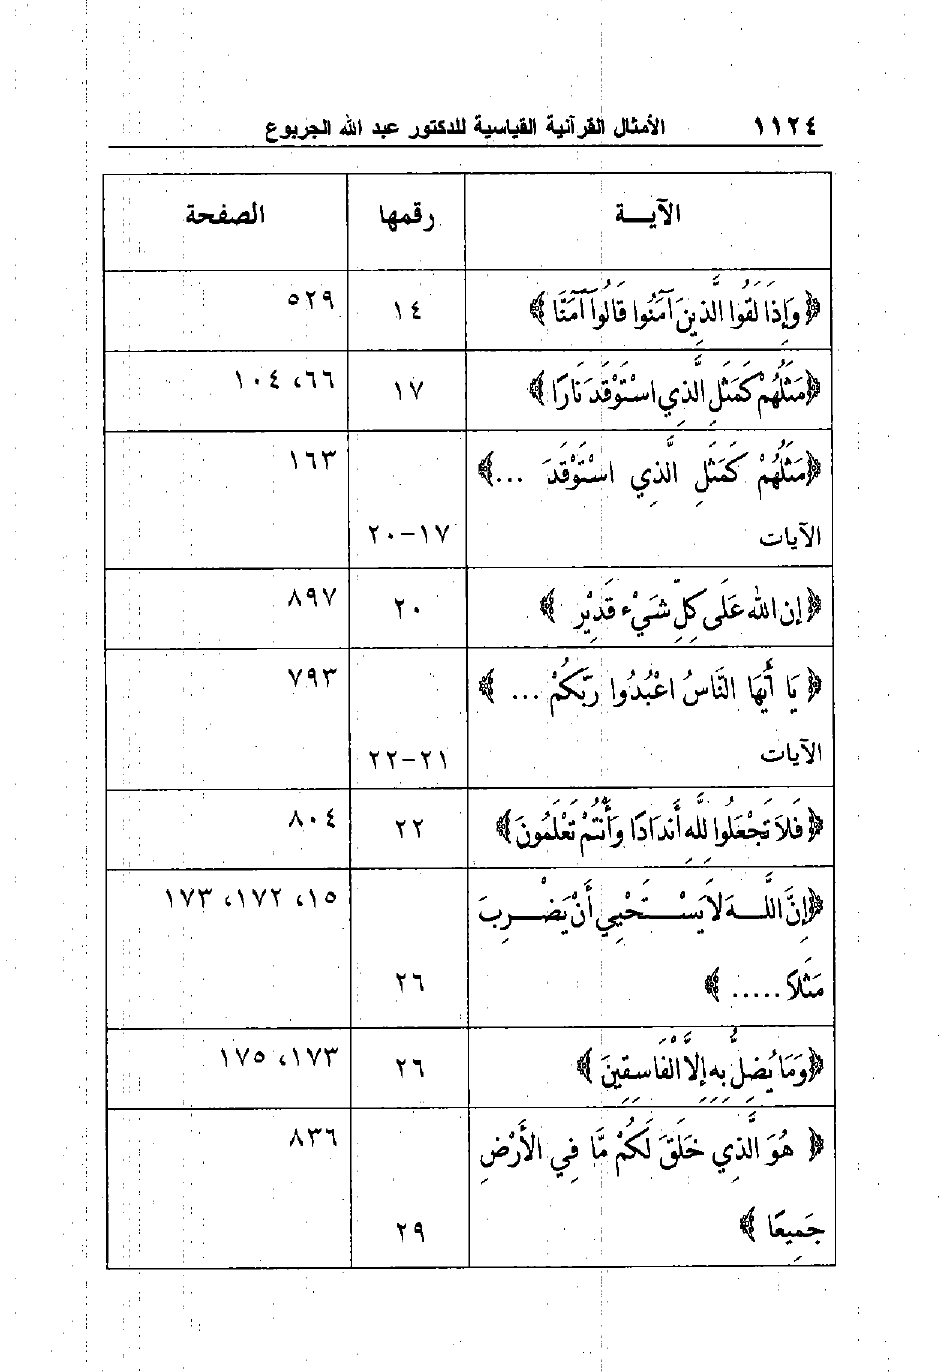 ١١٢٤ الأمثال القرآنية القياسية للدكتور عبد الله الجربوع
الآيـــة رقمها الصفحة
﴿وَإِذَا لَقُوا الَّذِينَ آمَنُوا قَالُوا آمَنَّا﴾ ١٤ ٥٢٩
﴿مَثَلُهُمْ كَمَثَلِ الَّذِي اسْتَوْقَدَ نَارًا﴾ ١٧ ٦٦، ١٠٤
﴿مَثَلُهُمْ كَمَثَلِ الَّذِي اسْتَوْقَدَ ...﴾ ١٦٣
الآيات ١٧-٢٠
﴿إن الله عَلَى كِلِّ شَيْء قَدِيْر ﴾ ٢٠ ٨٩٧
﴿ يَا أَيهَا النَّاسُ اعْبُدُوا رَبَّكُمْ ... ﴾ ٧٩٣
الآيات ٢١-٢٢
﴿فَلاَ تَجْعَلُوا للَّهِ أَندَادًا وَأَنْتُمْ تَعْلَمُونَ﴾ ٢٢ ٨٠٤
﴿إِنَّ اللَّـــهَ لاَ يَسْـــتَحْيِي أَنْ يَضْـــرِبَ ١٥، ١٧٢، ١٧٣
مَثَلاً ..... ﴾ ٢٦
﴿وَمَا يُضِلُّ بِهِ إِلاَّ الْفَاسِقِينَ ﴾ ٢٦ ١٧٣، ١٧٥
﴿ هُوَ الَّذِي خَلَقَ لَكُمْ مَّا فِي الأَرْضِ ٨٣٦
جَمِيعًا ﴾ ٢٩